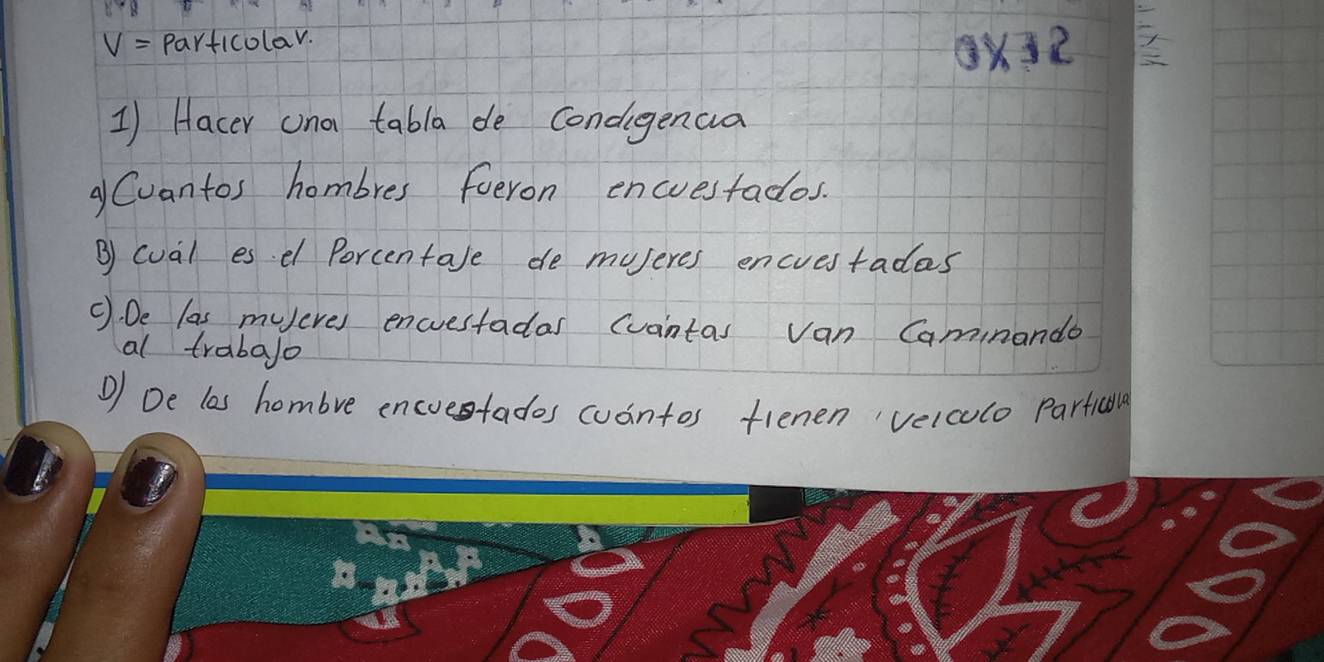 V = Particolar.
1) Hacer una tabla de Condigencia
a) Cuantos hombres fueron encuestados.
B) cuál es el Porcentaje de mujeres encuestadas
c) De las mujeres encuestadas cuántas van Caminando
al trabajo
D) De los hombre encuestados cuántos tienen veiculo Particula